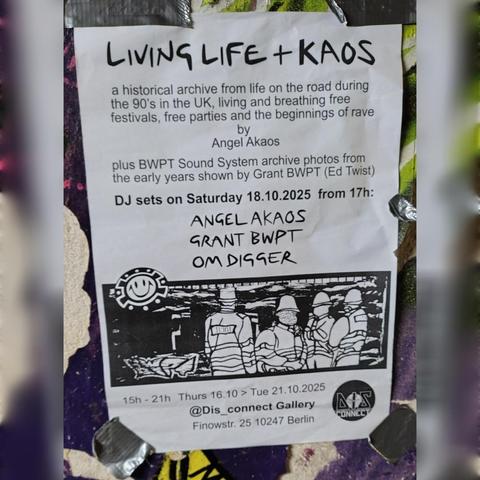 LIVING LIFE + KAOS
a historical archive from life on the road during
the 90's in the UK, living and breathing free
festivals, free parties and the beginnings of rave
by
Angel Akaos
plus BWPT Sound System archive photos from
the early years shown by Grant BWPT (Ed Twist)
DJ sets on Saturday 18.10.2025 from 17h:
ANGEL AKAOS
GRANT BWPT
OM DIGGER
15h - 21h Thurs 16.10 > Tue 21.10.2025
@Dis_connect Gallery
Finowstr. 25 10247 Berlin
DIS
CONNECT